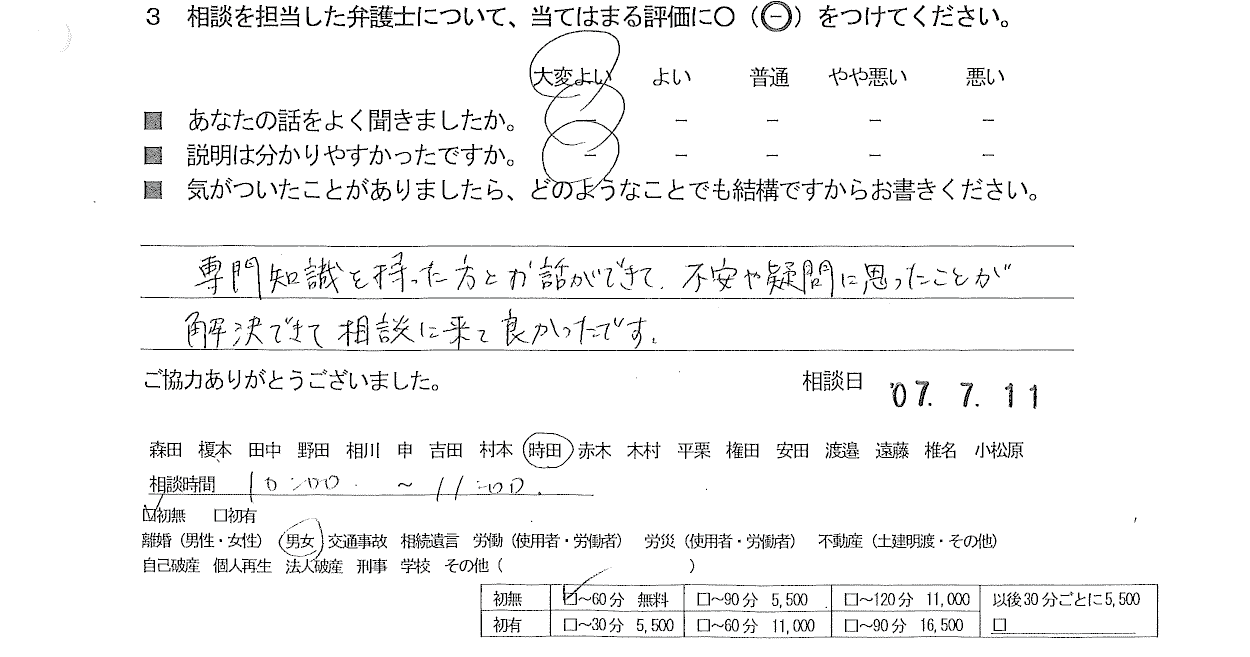 3 相談を担当した弁護士について、当てはまる評価に○（㊀）をつけてください。
大変よい よい 普通 やや悪い 悪い
■ あなたの話をよく聞きましたか。 － － － － －
■ 説明は分かりやすかったですか。 － － － － －
■ 気がついたことがありましたら、どのようなことでも結構ですからお書きください。
専門知識を持った方とお話ができて、不安や疑問に思ったことが
解決できて相談に来て良かったです。
ご協力ありがとうございました。 相談日 '07. 7. 11
森田 榎本 田中 野田 相川 申 吉田 村本 時田 赤木 木村 平栗 権田 安田 渡邉 遠藤 椎名 小松原
相談時間 10:00 ～ 11:00.
☑初無 □初有
離婚（男性・女性） 男女 交通事故 相続遺言 労働（使用者・労働者） 労災（使用者・労働者） 不動産（土建明渡・その他）
自己破産 個人再生 法人破産 刑事 学校 その他（ ）
初無 ☑～60分 無料 □～90分 5,500 □～120分 11,000 以後30分ごとに5,500
初有 □～30分 5,500 □～60分 11,000 □～90分 16,500 □